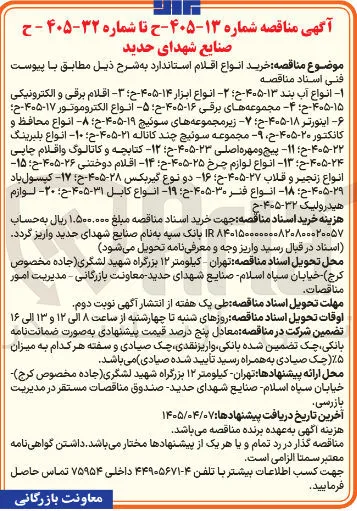 آگهی مناقصه شماره ۱۳-۴۰۵-ح تا شماره ۳۲-۴۰۵ - ح
صنایع شهدای حدید
موضوع مناقصه:خرید انواع اقلام استاندارد به‌شرح ذیل مطابق با پیوست
فنی اسناد مناقصه
۱- انواع آب بند ۱۳-۴۰۵-ح؛ ۲- انواع ابزار ۱۴-۴۰۵-ح؛ ۳- اقلام برقی و الکترونیکی
۱۵-۴۰۵-ح؛ ۴- مجموعه‌های برقی ۱۶-۴۰۵-ح؛ ۵- انواع الکتروموتور ۱۷-۴۰۵-ح؛
۶- اینورتر ۱۸-۴۰۵-ح؛ ۷- زیرمجموعه‌های سوئیچ ۱۹-۴۰۵-ح؛ ۸- انواع محافظ و
کانکتور ۲۰-۴۰۵-ح، ۹- مجموعه سوئیچ چند کاناله ۲۱-۴۰۵-ح؛ ۱۰- انواع بلبرینگ
۲۲-۴۰۵-ح؛ ۱۱- پیچ‌ومهره‌اصلی ۲۳-۴۰۵-ح؛ ۱۲- کتابچه و کاتالوگ واقلام چاپی
۲۴-۴۰۵-ح؛ ۱۳- انواع لوازم چرخ ۲۵-۴۰۵-ح؛ ۱۴- اقلام دوختنی ۲۶-۴۰۵-ح؛ ۱۵-
انواع زنجیر و قلاب ۲۷-۴۰۵-ح؛ ۱۶- دو نوع گیربکس ۲۸-۴۰۵-ح؛ ۱۷- کپسول‌باد
۲۹-۴۰۵-ح؛ ۱۸- انواع فنر ۳۰-۴۰۵-ح؛ ۱۹- انواع کابل ۳۱-۴۰۵-ح؛ ۲۰- لوازم
هیدرولیک ۳۲-۴۰۵-ح
هزینه خرید اسناد مناقصه:جهت خرید اسناد مناقصه مبلغ ۱.۵۰۰.۰۰۰ ریال به‌حساب
IR بانک سپه به‌نام صنایع شهدای حدید واریز گردد.
(اسناد در قبال رسید واریز وجه و معرفی‌نامه تحویل می‌شود)
محل تحویل اسناد مناقصه:تهران - کیلومتر ۱۲ بزرگراه شهید لشگری(جاده مخصوص
کرج)-خیابان سپاه اسلام- صنایع شهدای حدید-معاونت بازرگانی - مدیریت امور
مناقصات.
مهلت تحویل اسناد مناقصه:طی یک هفته از انتشار آگهی نوبت دوم.
اوقات تحویل اسناد مناقصه:روزهای شنبه تا چهارشنبه از ساعت ۸ الی ۱۲ و ۱۳ الی ۱۶
تضمین شرکت در مناقصه:معادل پنج درصد قیمت پیشنهادی به‌صورت ضمانت‌نامه
بانکی،چک تضمین شده بانکی،واریزنقدی،چک صیادی و سفته هر کدام به میزان
۵٪(چک صیادی به‌همراه رسید تایید شده صیادی)می‌باشد.
محل ارائه پیشنهادها:تهران- کیلومتر ۱۲ بزرگراه شهید لشگری(جاده مخصوص کرج)-
خیابان سپاه اسلام- صنایع شهدای حدید- صندوق مناقصات مستقر در مدیریت
بازرسی.
آخرین تاریخ دریافت پیشنهادها: ۱۴۰۵/۰۴/۰۷
هزینه آگهی به‌عهده برنده مناقصه می‌باشد.
مناقصه گذار در رد تمام و یا هر یک از پیشنهادها مختار می‌باشد.داشتن گواهی‌نامه
معتبر سمتا الزامی است.
جهت کسب اطلاعات بیشتر با تلفن ۴-۴۴۹۰۵۶۷۱ داخلی ۷۵۹۵۴ تماس حاصل
فرمایید.
معاونت بازرگانی